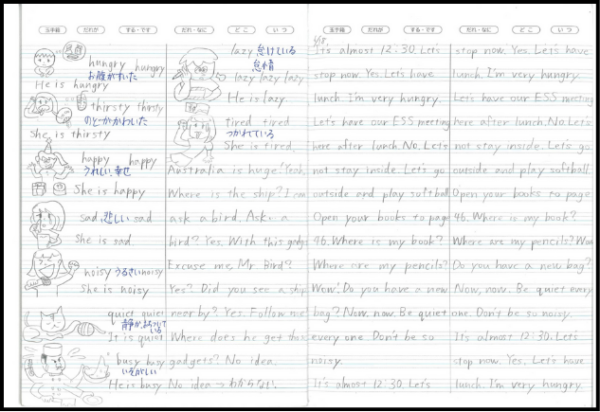 玉手箱 だれが する・です だれ・なに どこ いつ
hungry hungry
お腹がすいた
He is hungry
thirsty thirsty
のどがかわいた
She is thirsty
happy happy
うれしい、幸せ
She is happy
sad 悲しい sad
She is sad
noisy うるさい noisy
She is noisy
quiet quiet
It is quiet
busy busy
いそがしい
He is busy
lazy 怠けている
怠惰
lazy lazy lazy
He is lazy
tired tired
つかれている
She is tired.
Australia is huge! Yeah.
Where is the ship? I can
ask a bird. Ask a
bird? Yes. With this gadget
Excuse me, Mr Bird?
Yes? Did you see a ship
near by? Yes. Follow me
Where does he get those
gadgets? No idea.
No idea → わからない。
玉手箱 だれが する・です だれ・なに どこ いつ
It's almost 12:30. Let's
stop now. Yes. Let's have
lunch. I'm very hungry.
Let's have our ESS meeting
here after lunch. No. Let's
not stay inside. Let's go
outside and play softball
Open your books to page
46. Where is my book?
Where are my pencils?
Wow! Do you have a new
bag? Now, now. Be quiet
every one. Don't be so
noisy.
It's almost 12:30. Let's
stop now. Yes. Let's have
lunch. I'm very hungry.
Let's have our ESS meeting
here after lunch. No. Let's
not stay inside. Let's go
outside and play softball.
Open your books to page
46. Where is my book?
Where are my pencils? Wow
Do you have a new bag?
Now, now. Be quiet every
one. Don't be so noisy.
It's almost 12:30. Let's
stop now. Yes. Let's have
lunch. I'm very hungry